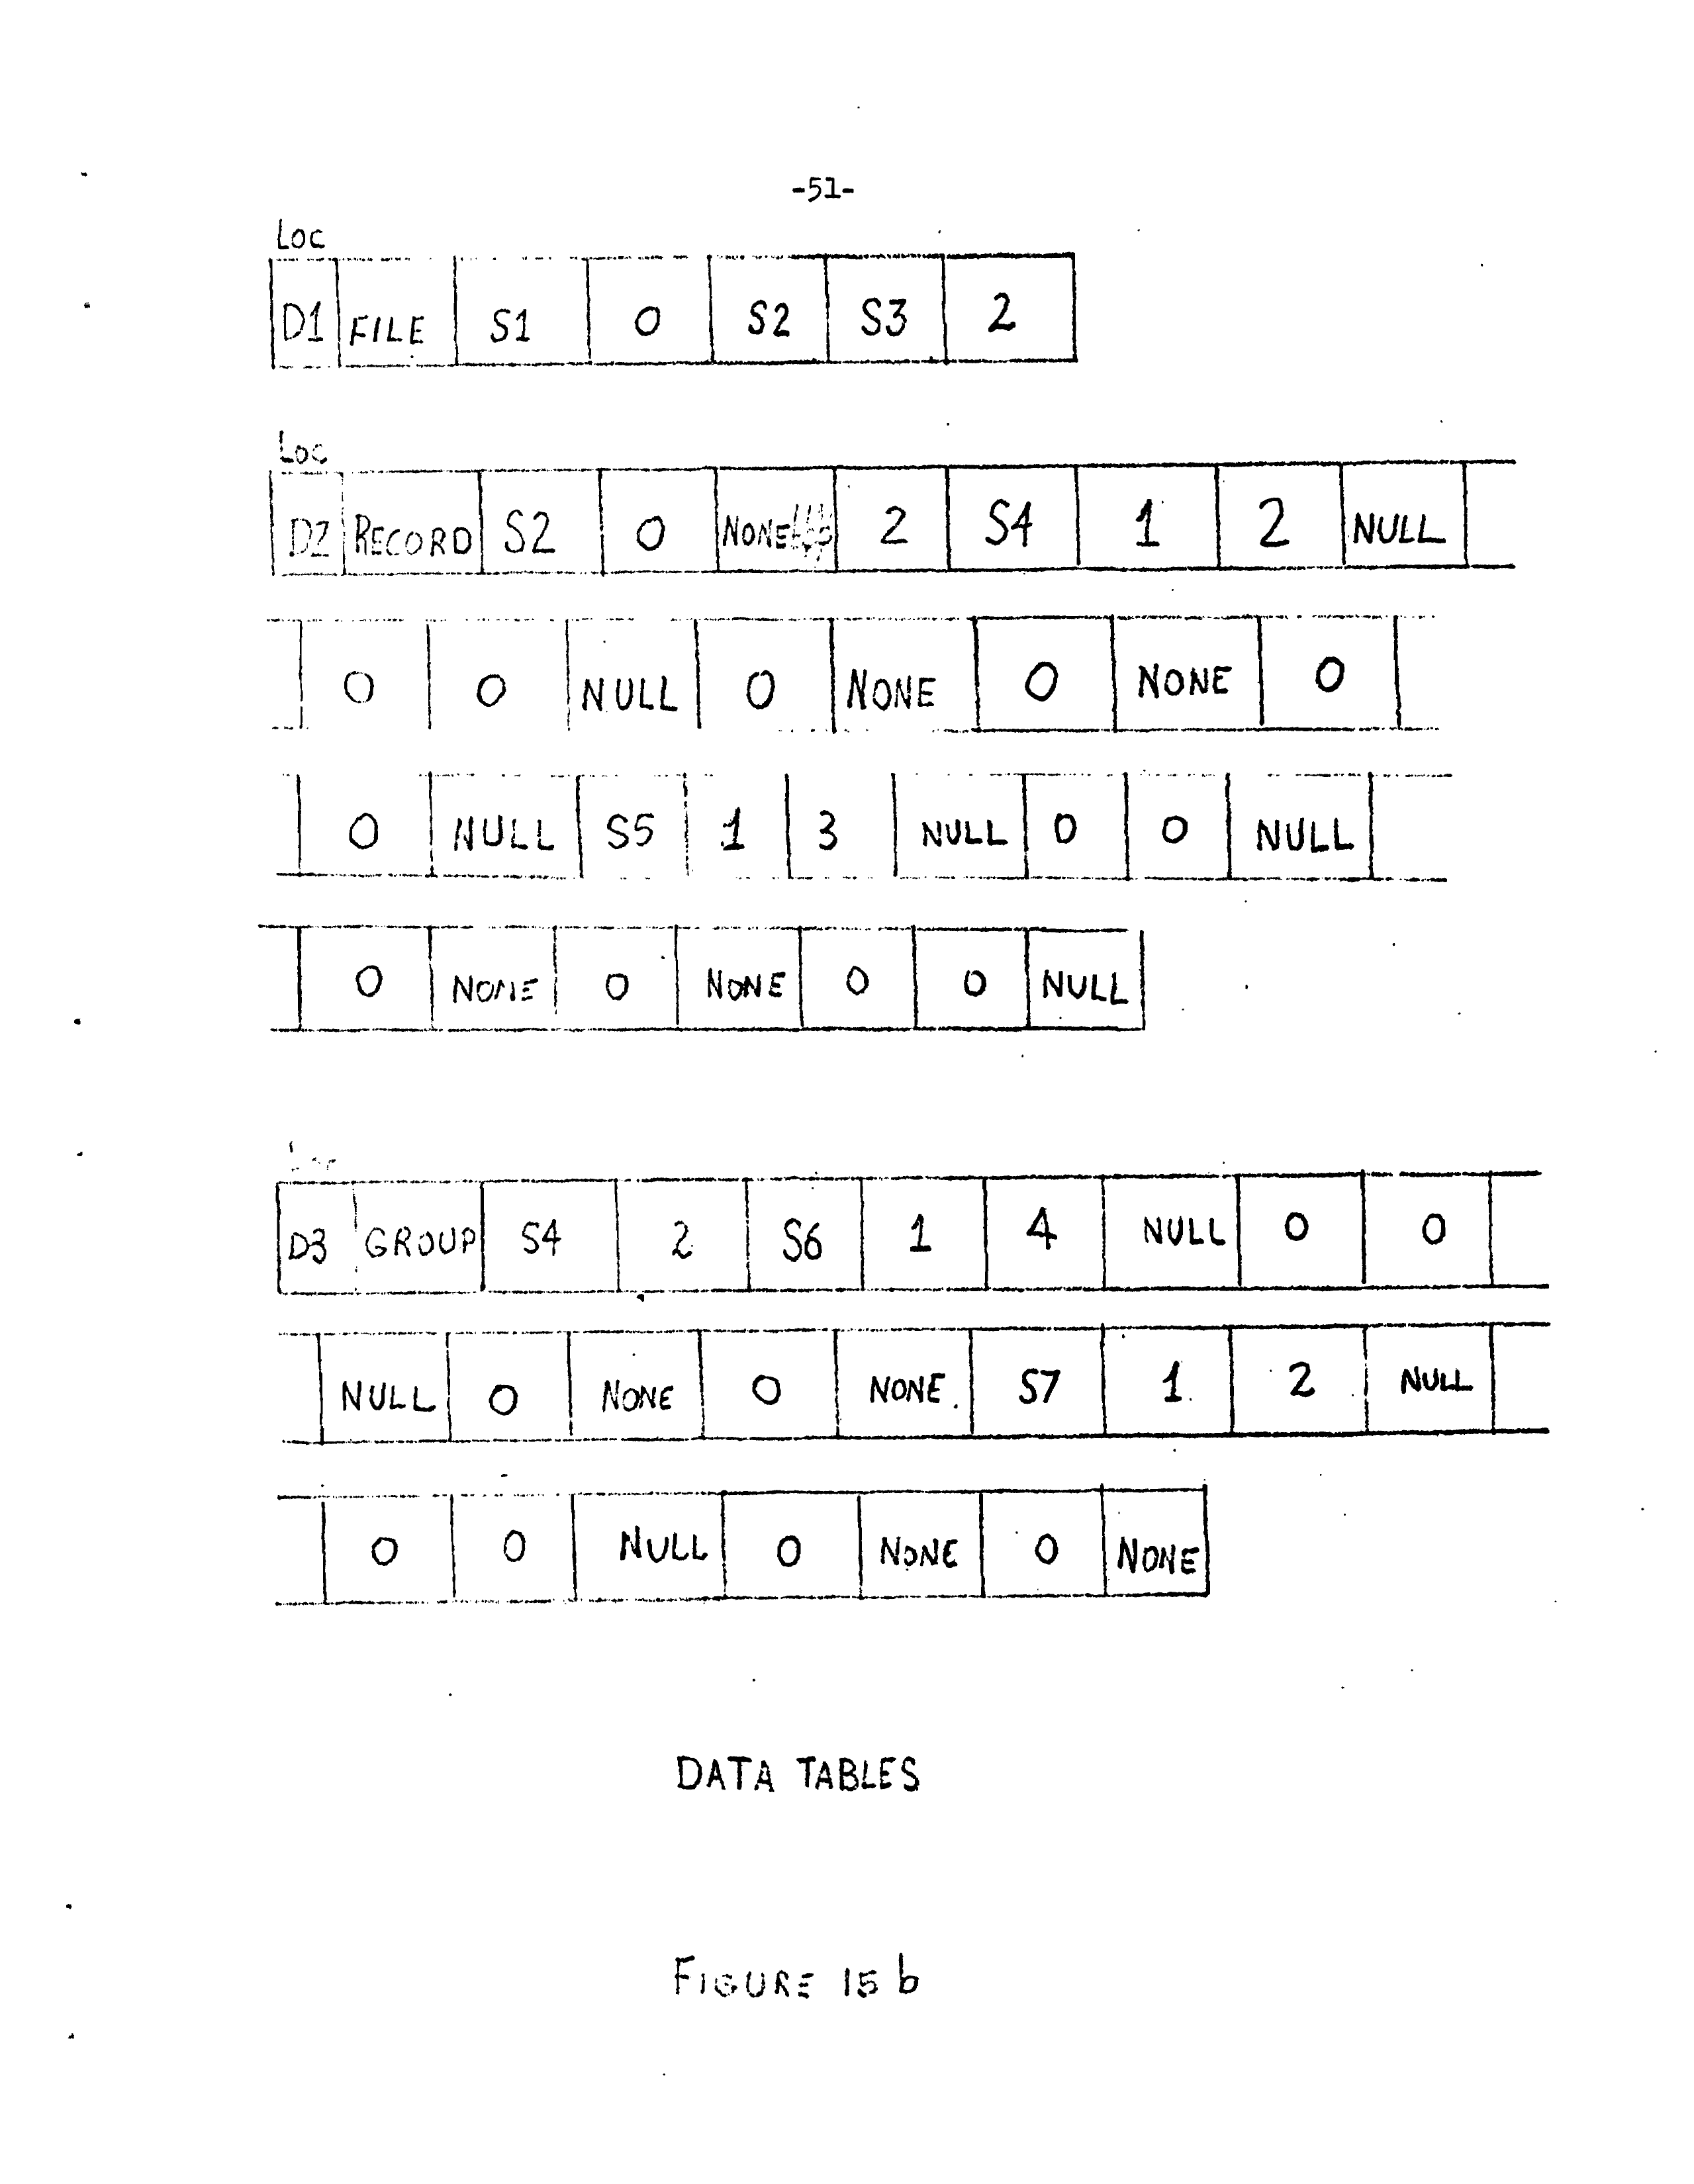 -51-
Loc
D1 FILE S1 0 S2 S3 2
Loc
D2 RECORD S2 0 NONE 2 S4 1 2 NULL
0 0 NULL 0 NONE 0 NONE 0
0 NULL S5 1 3 NULL 0 0 NULL
0 NONE 0 NONE 0 0 NULL
D3 GROUP S4 2 S6 1 4 NULL 0 0
NULL 0 NONE 0 NONE. S7 1 2 NULL
0 0 NULL 0 NONE 0 NONE
DATA TABLES
FIGURE 15 b